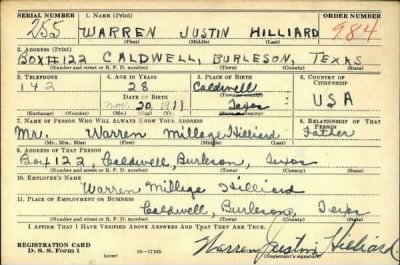 SERIAL NUMBER 1. NAME (Print) ORDER NUMBER
255 WARREN JUSTIN HILLIARD 984
(First) (Middle) (Last)
2. ADDRESS (Print)
BOX#122 CALDWELL, BURLESON, TEXAS
(Number and street or R. F. D. number) (Town) (County) (State)
3. TELEPHONE 4. AGE IN YEARS 5. PLACE OF BIRTH 6. COUNTRY OF CITIZENSHIP
142 28 Caldwell
DATE OF BIRTH (Town or county)
Nov. 20, 1911 Texas USA
(Exchange) (Number) (Mo.) (Day) (Yr.) (State or country)
7. NAME OF PERSON WHO WILL ALWAYS KNOW YOUR ADDRESS 8. RELATIONSHIP OF THAT PERSON
Mr. Warren Millage Hilliard Father
(Mr., Mrs., Miss) (First) (Middle) (Last)
9. ADDRESS OF THAT PERSON
Box 122, Caldwell, Burleson, Texas
(Number and street or R. F. D. number) (Town) (County) (State)
10. EMPLOYER'S NAME
Warren Millage Hilliard
11. PLACE OF EMPLOYMENT OR BUSINESS
Caldwell, Burleson, Texas
(Number and street or R. F. D. number) (Town) (County) (State)
I AFFIRM THAT I HAVE VERIFIED ABOVE ANSWERS AND THAT THEY ARE TRUE.
REGISTRATION CARD
D. S. S. Form 1 (over) 16—17105 Warren Justin Hilliard
(Registrant's signature)